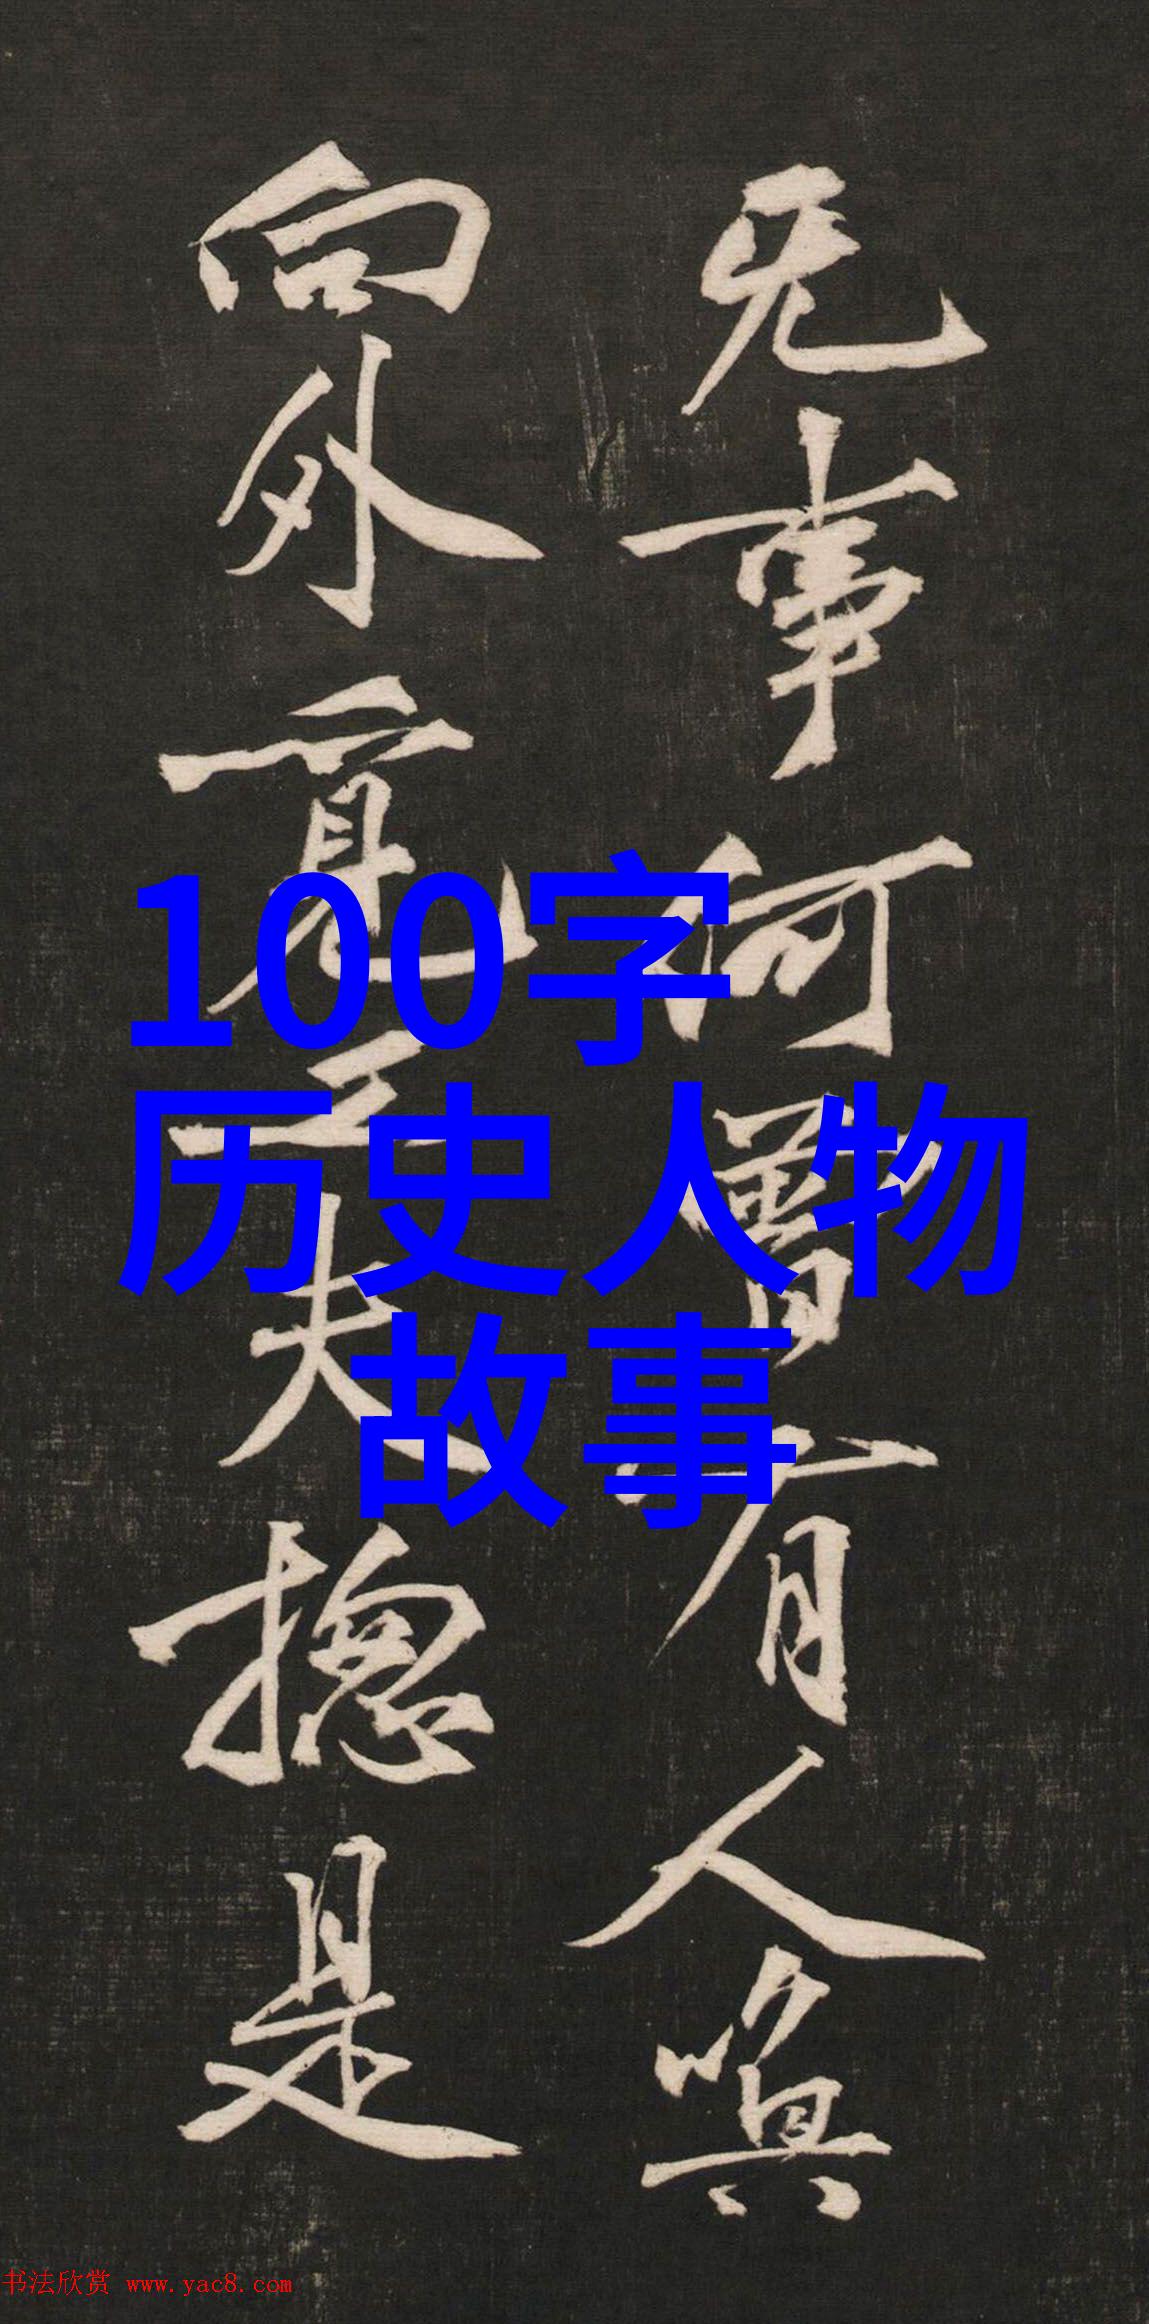 无事何曾有人喚
向外覓工夫揔是
100字
历史人物
故事
书法欣赏 www.yac8.com